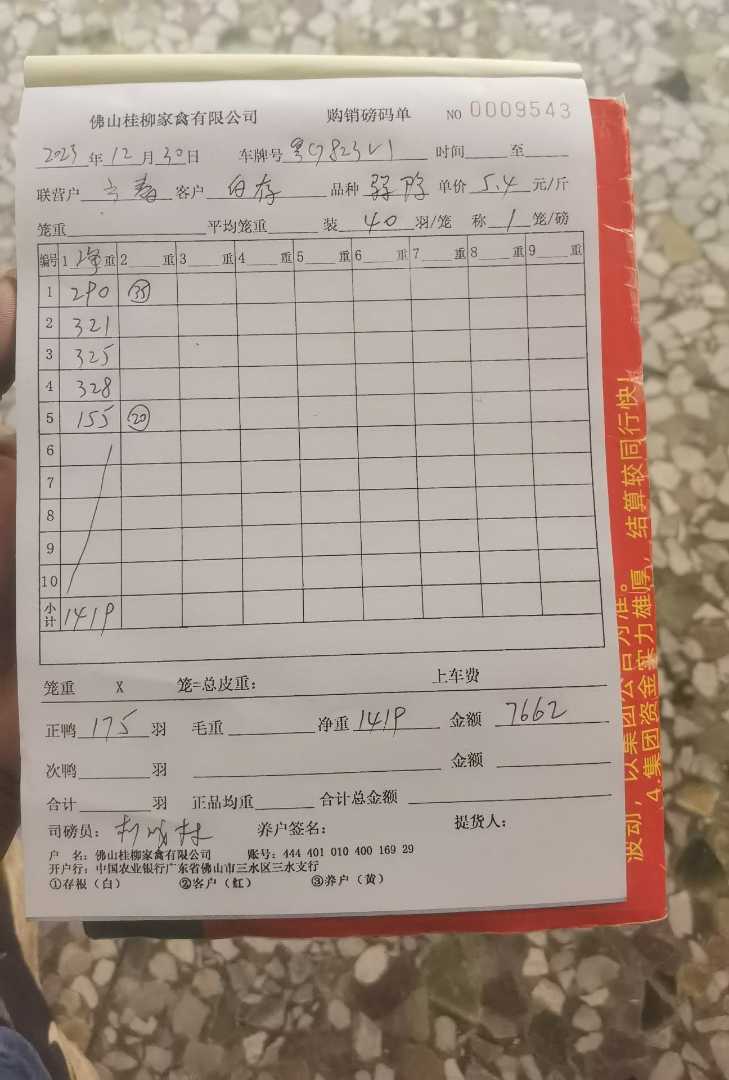 佛山桂柳家禽有限公司 购销磅码单 NO 0009543
2023 年 12 月 30 日 车牌号 时间 至
联营户 客户 品种 单价 5.4 元/斤
笼重 平均笼重 装 40 羽/笼 称 1 笼/磅
编号 1 净 重 2 重 3 重 4 重 5 重 6 重 7 重 8 重 9 重
1 290 35
2 321
3 325
4 328
5 155 20
6
7
8
9
10
小计 1419
笼重 X 笼=总皮重: 上车费
正鸭 175 羽 毛重 净重 1419 金额 7662
次鸭 羽 金额
合计 羽 正品均重 合计总金额
司磅员: 养户签名: 提货人:
户 名: 佛山桂柳家禽有限公司 账号: 444 401 010 400 169 29
开户行: 中国农业银行广东省佛山市三水区三水支行
①存根(白) ②客户(红) ③养户(黄)
波动, 以集团公告为准。
4.集团资金实力雄厚, 结算较同行快!